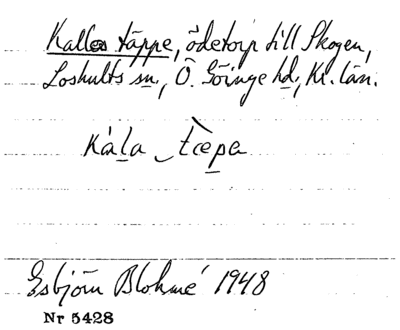 Kalles täppe, ödetorp till Skogen,
Loshults sn, Ö. Göinge hd, Kr. län.
kála tæpa
Esbjörn Blohmé 1948
Nr 5428